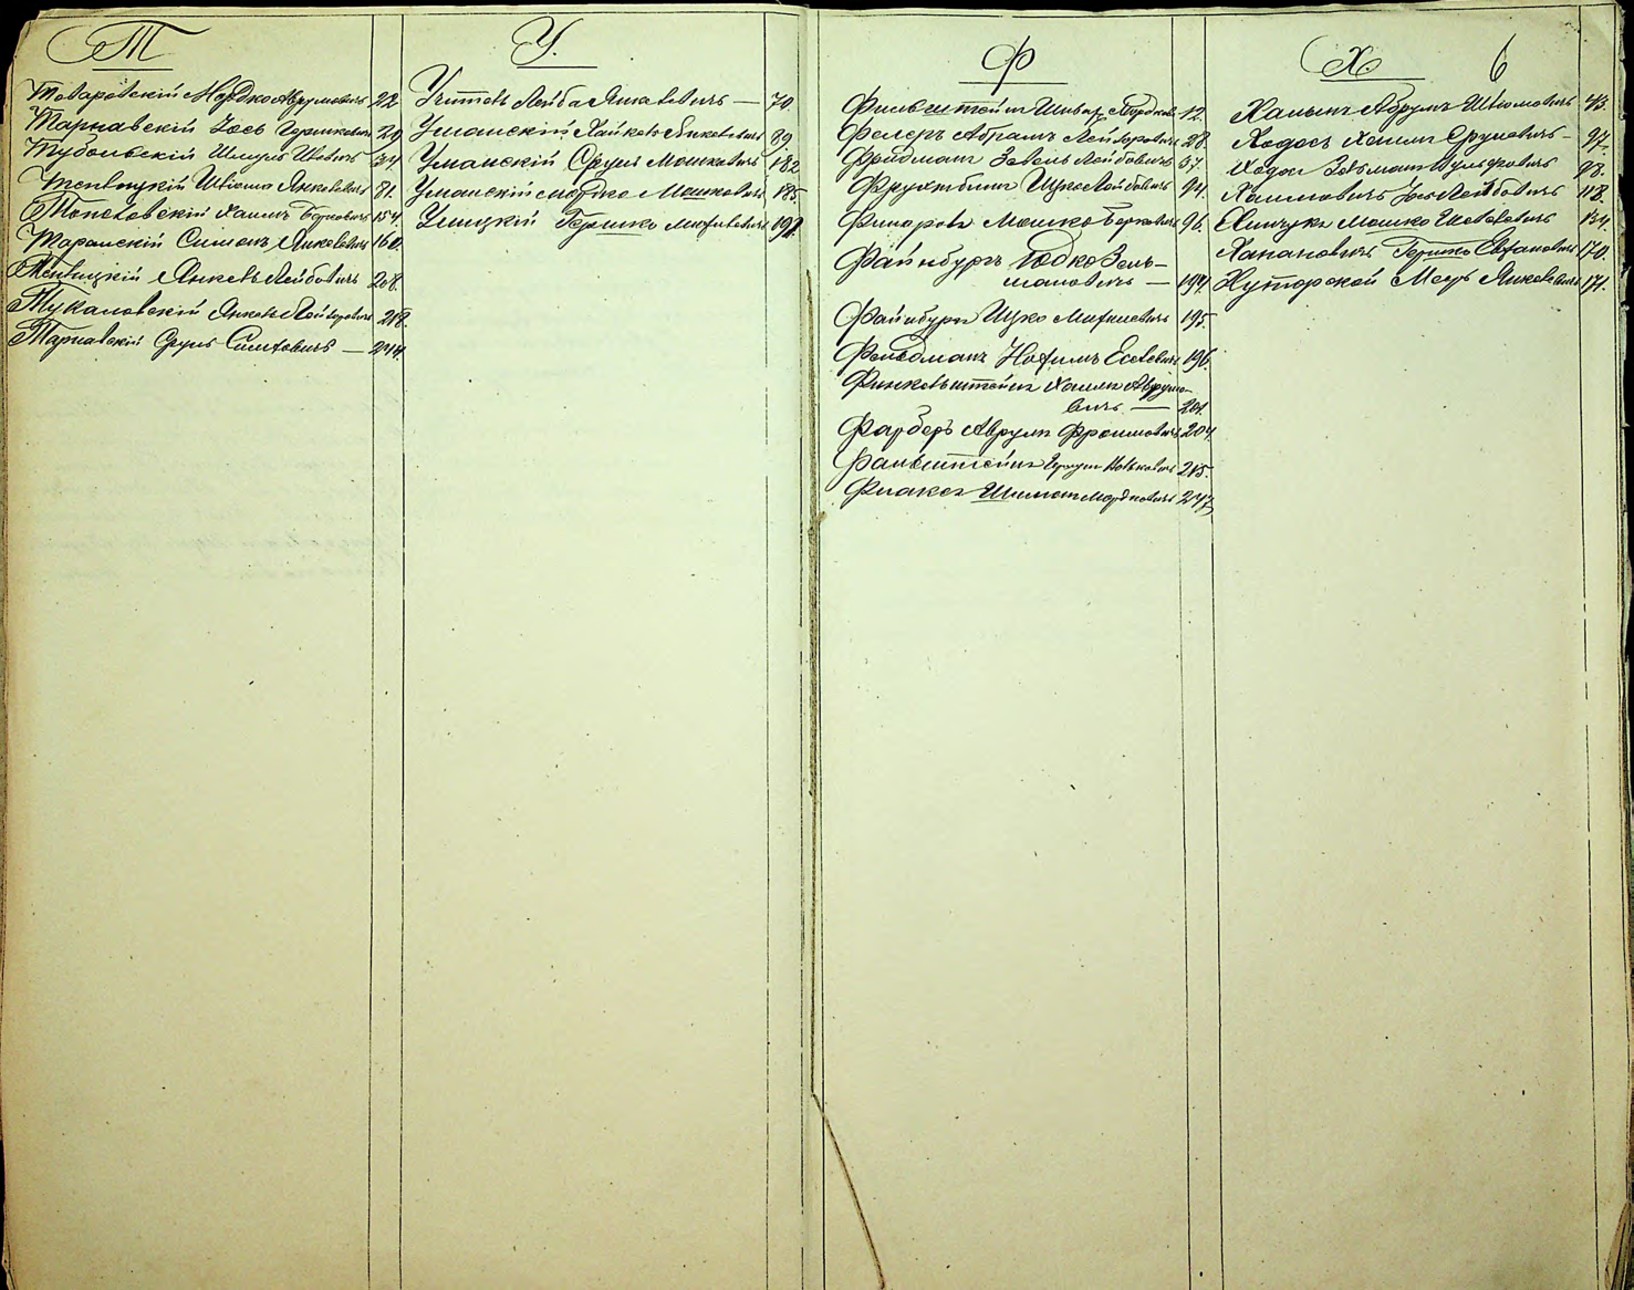 Т
Товаровскій Мордко Аврумовичъ 22
Тарнавскій Іось Гершковичъ 29
Тубольскій Шмуль Шовичъ 34
Теплицкій Шліома Янкелевичъ 81.
Топоровскій Хаимъ Берковичъ 154.
Таранскій Симонъ Янкелевичъ 160.
Теплицкій Янкель Лейбовичъ 208.
Тукаловскій Янкель Лейзоровичъ 218.
Тарнавскій Сруль Симховичъ — 244
У.
Учитель Лейба Янкелевичъ — 70.
Уманскій Хайкель Янкелевичъ 89.
Уманскій Сруль Мошковичъ 182
Уманскій Мордко Мошковичъ 185.
Улицкій Гершко Михилевичъ 192.
Ф
Фильштейнъ 12.
Фельеръ Абрамъ Лейзоровичъ 28.
Фридманъ Зейвель Лейбовичъ 37.
Фрухтбинъ Ицко Лейбовичъ 94.
Фишаровъ Мошко Берковичъ 96.
Файнбургъ Юдко Зель-
мановичъ — 194.
Файнбургъ Ицко Михилевичъ 195.
Фельдманъ Нохимъ 196.
Финкельштейнъ Хаимъ Аврумо-
вичъ — 201.
Фарберъ Аврумъ Фроимовичъ 204.
Фальштейнъ 215.
Флаксъ Шимонъ Мордковичъ 247
Х. 6
Халыпъ Абрумъ Шлиомовичъ 43.
Ходосъ Хаимъ Срулевичъ — 97.
Ходосъ Зельманъ Вульфовичъ 98.
Хаимовичъ Іось Лейбовичъ 118.
Хинчукъ Мошко 134.
Ханановичъ Гершко 170.
Хуторской Меер Янкелевичъ 171.